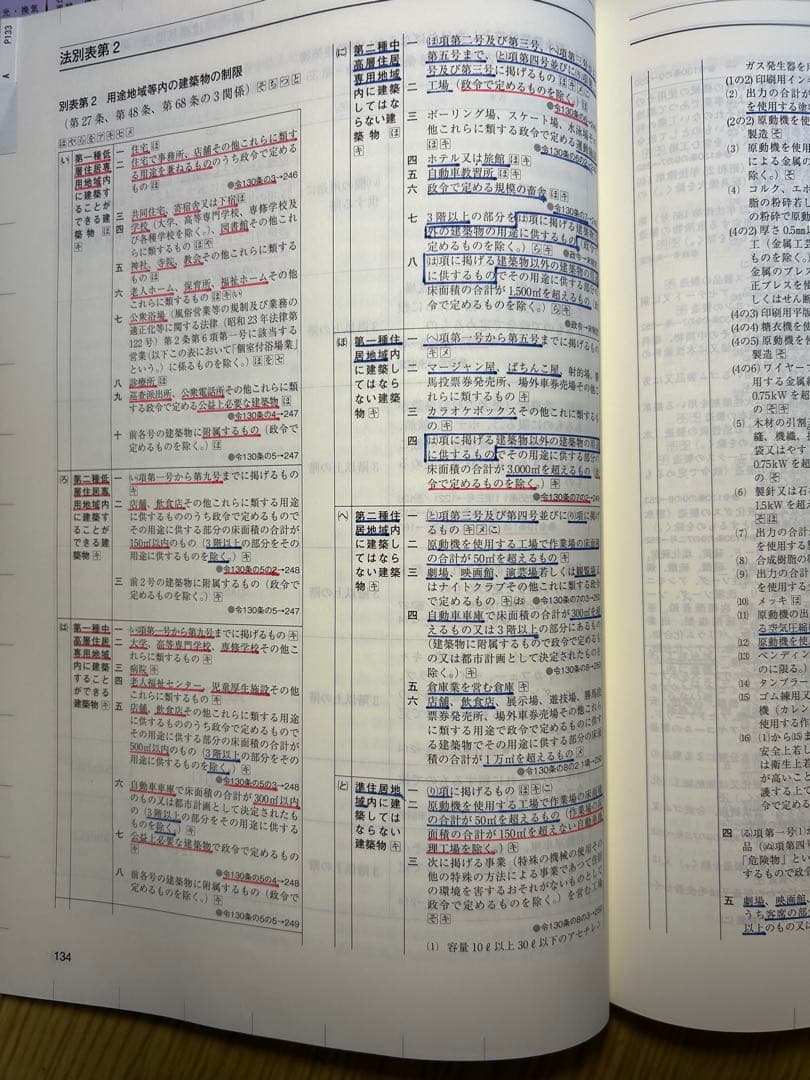 光・換気
P133
A
法別表第2
別表第2 用途地域等内の建築物の制限
（第27条、第48条、第68条の3関係）そちつと
ほやらをアキセメ
い 第一種低層住居専用地域内に建築することができる建築物 ほ キ
一 住宅 ほ
二 住宅で事務所、店舗その他これらに類する用途を兼ねるもののうち政令で定めるもの ほ
●令130条の3→246
三 共同住宅、寄宿舎又は下宿 ほ
四 学校（大学、高等専門学校、専修学校及び各種学校を除く。）、図書館その他これらに類するもの ほ や
五 神社、寺院、教会その他これらに類するもの ほ
六 老人ホーム、保育所、福祉ホームその他これらに類するもの ほ キ い
七 公衆浴場（風俗営業等の規制及び業務の適正化等に関する法律（昭和23年法律第122号）第2条第6項第一号に該当する営業（以下この表において「個室付浴場業」という。）に係るものを除く。）ほ を セ
八 診療所 ほ
九 巡査派出所、公衆電話所その他これらに類する政令で定める公益上必要な建築物 ほ
●令130条の4→247
十 前各号の建築物に附属するもの（政令で定めるものを除く。）ほ
●令130条の5→247
ろ 第二種低層住居専用地域内に建築することができる建築物 キ
一 (い)項第一号から第九号までに掲げるもの キ
二 店舗、飲食店その他これらに類する用途に供するもののうち政令で定めるものでその用途に供する部分の床面積の合計が150㎡以内のもの（3階以上の部分をその用途に供するものを除く。）キ
●令130条の5の2→248
三 前2号の建築物に附属するもの（政令で定めるものを除く。）キ
●令130条の5→247
は 第一種中高層住居専用地域内に建築することができる建築物 キ
一 (い)項第一号から第九号までに掲げるもの キ
二 大学、高等専門学校、専修学校その他これらに類するもの キ
三 病院 キ
四 老人福祉センター、児童厚生施設その他これらに類するもの キ
五 店舗、飲食店その他これらに類する用途に供するもののうち政令で定めるものでその用途に供する部分の床面積の合計が500㎡以内のもの（3階以上の部分をその用途に供するものを除く。）キ
●令130条の5の3→248
六 自動車車庫で床面積の合計が300㎡以内のもの又は都市計画として決定されたもの（3階以上の部分をその用途に供するものを除く。）キ
七 公益上必要な建築物で政令で定めるもの キ
●令130条の5の4→248
八 前各号の建築物に附属するもの（政令で定めるものを除く。）キ
●令130条の5の5→249
134
に 第二種中高層住居専用地域内に建築してはならない建築物 ほ キ
一 (ほ)項第二号及び第三号、(へ)項第三号から第五号まで、(と)項第四号並びに
号及び第三号に掲げるもの ほ キ メ
二 工場（政令で定めるものを除く。）
●令130条の6
三 ボーリング場、スケート場、水泳場その他これらに類する政令で定める運動施設
四 ホテル又は旅館 ほ キ
五 自動車教習所 ほ キ
六 政令で定める規模の畜舎 ほ キ
七 3階以上の部分を(は)項に掲げる建築物以外の建築物の用途に供するもの（政令で定めるものを除く。）ら キ
八 (は)項に掲げる建築物以外の建築物の用途に供するものでその用途に供する部分の床面積の合計が1,500㎡を超えるもの（政令で定めるものを除く。）ら キ
ほ 第一種住居地域内に建築してはならない建築物 キ
一 (へ)項第一号から第五号までに掲げるもの キ メ
二 マージャン屋、ぱちんこ屋、射的場、勝馬投票券発売所、場外車券売場その他これらに類するもの キ
三 カラオケボックスその他これに類するもの キ
四 (は)項に掲げる建築物以外の建築物の用途に供するものでその用途に供する部分の床面積の合計が3,000㎡を超えるもの（政令で定めるものを除く。）キ
●令130条の7の2
へ 第二種住居地域内に建築してはならない建築物 キ
一 (と)項第三号及び第四号並びに(り)項に掲げるもの キ メ こ
二 原動機を使用する工場で作業場の床面積の合計が50㎡を超えるもの キ
三 劇場、映画館、演芸場若しくは観覧場又はナイトクラブその他これに類する政令で定めるもの キ お
●令130条の7の3
四 自動車車庫で床面積の合計が300㎡を超えるもの又は3階以上の部分にあるもの（建築物に附属するもので政令で定めるもの又は都市計画として決定されたものを除く。）キ
●令130条の8
五 倉庫業を営む倉庫 キ
六 店舗、飲食店、展示場、遊技場、勝馬投票券発売所、場外車券売場その他これらに類する用途で政令で定めるものに供する建築物でその用途に供する部分の床面積の合計が1万㎡を超えるもの メ
●令130条の8の2 1項
と 準住居地域内に建築してはならない建築物 キ
一 (り)項に掲げるもの ほ キ こ
二 原動機を使用する工場で作業場の床面積の合計が50㎡を超えるもの（作業場の床面積の合計が150㎡を超えない自動車修理工場を除く。）キ
三 次に掲げる事業（特殊の機械の使用その他の特殊の方法による事業であつて住居の環境を害するおそれがないものとして政令で定めるものを除く。）を営む工場 そ キ
●令130条の8の3
(1) 容量10ℓ以上30ℓ以下のアセチレン
ガス発生器を
(1の2) 印刷用イン
(2) 出力の合計が
を使用する塗
(2の2) 原動機を使用
製造 そ
(3) 原動機を使用
による金属の
除く。）そ
(4) コルク、エボ
脂の粉砕若し
の粉砕で原動
(4の2) 厚さ0.5㎜以
工（金属工芸
ものを除く。）
金属のプレス
正プレスを使
しくはせん断
(4の3) 印刷用平版
(4の4) 糖衣機を使
(4の5) 原動機を使用
製造 そ
(4の6) ワイヤーフ
用する金属線
0.75kWを超
の そ キ
(5) 木材の引割
縫、機織、撚
袋又はやす
0.75kWを超
の そ キ
(6) 製針又は石
1.5kWを超え
そ ほ
(7) 出力の合計
を使用する製
(8) 合成樹脂の
(9) 出力の合計
を使用する
(10) メッキ ほ
(11) 原動機の出
る空気圧縮
(12) 原動機を使
(13) ベンディン
のに限る。）
(14) タンブラー
(15) ゴム練用又
機（カレン
使用する作
(16) (1)から(15)ま
安全上若し
は衛生上若
が高いこと
護する上で
令で定める
四 (る)項第一号(1)か
品（(ぬ)項第四号
「危険物」とい
するもので政令
五 劇場、映画館、
うち客席の部分
以上のもの又は